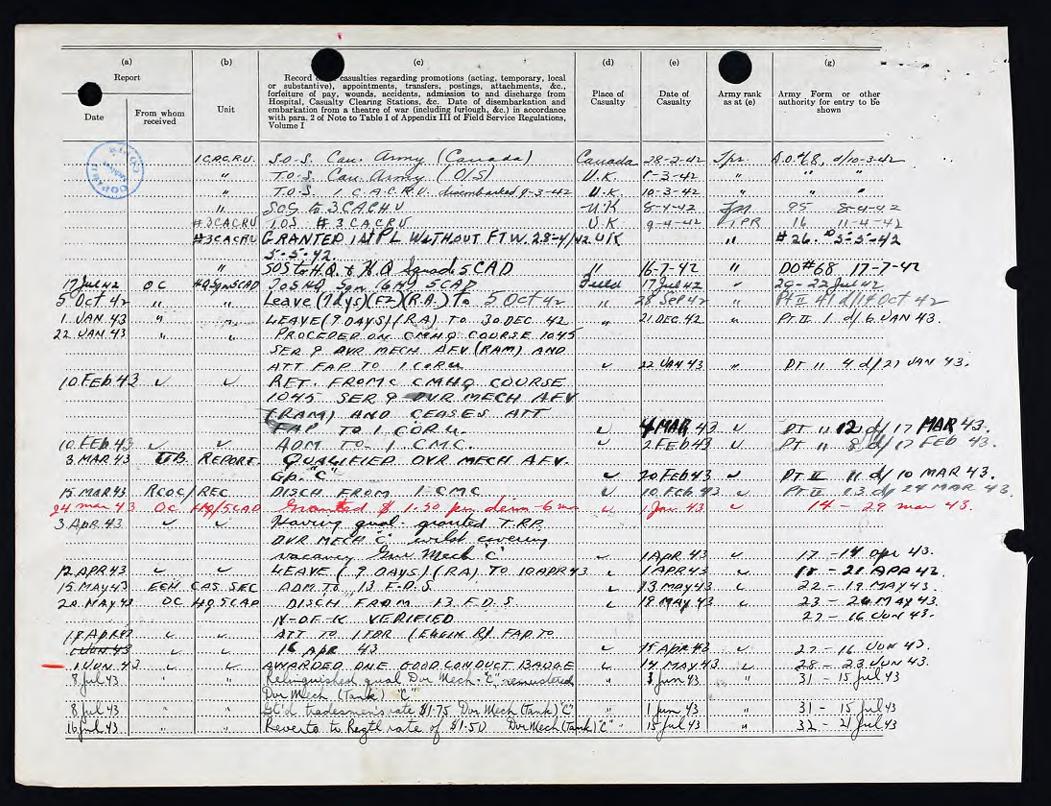 (a) (b) (c) (d) (e) (g)
Report
Date From whom received Unit
Record casualties regarding promotions (acting, temporary, local
or substantive), appointments, transfers, postings, attachments, &c.,
forfeiture of pay, wounds, accidents, admission to and discharge from
Hospital, Casualty Clearing Stations, &c. Date of disembarkation and
embarkation from a theatre of war (including furlough, &c.) in accordance
with para. 2 of Note to Table I of Appendix III of Field Service Regulations,
Volume I
Place of Casualty Date of Casualty Army rank as at (e) Army Form or other authority for entry to be shown
1 C.A.C.R.U. S.O.S. Can. Army (Canada) Canada 28-2-42 Tpr. d/10-3-42
" T.O.S. Can. Army (O/S) U.K. 1-3-42 " " "
" T.O.S. 1 C.A.C.R.U. disembarked 9-3-42 U.K. 10-3-42 " " "
" SOS to 3 CACRU U.K 8-4-42 Tpr 85 8-4-42
#3CACRU TOS #3 CACRU U.K 9-4-42 TPR 16 11-4-42
#3CACRU GRANTED 1st PL WITHOUT F.T.W. 28-4/42 UK " #26. 5-5-42
5-5-42.
" SOS to H.Q. & HQ Squad 5 CAD " 16-7-42 " DO#68 17-7-42
17 Jul 42 OC HQ Sqn 5CAD TOS HQ Sqn 5CAD Field 17 Jul 42 " 29-22 Jul 42
5 Oct 42 " " Leave (7 days)(FZ)(R.A.) To 5 Oct 42 " 28 Sep 42 " Pt II 41 d/14 Oct 42
1. JAN 43 " " LEAVE (9 DAYS)(RA) TO 30 DEC 42 " 21 DEC 42 " PT II 1 d/6 JAN 43.
22 JAN 43 " " PROCEDED ON CMHQ COURSE 1045
SER 9 DVR MECH AFV (RAM) AND
ATT FAP TO 1 CORU 22 JAN 43 " PT II 4 d/27 JAN 43.
10 FEB 43 RET. FROM CMHQ COURSE
1045 SER 9 DVR MECH AFV
(RAM) AND CEASES ATT
FAP TO 1 CORU. 4 MAR 43 PT II 12 d/17 MAR 43.
10 FEB 43 ADM TO 1 C.M.C. 2 FEB 43 PT II 8 d/17 FEB 43.
3 MAR 43 REPORT. QUALIFIED DVR MECH AFV.
Gp. "C" 20 FEB 43 PT II 11 d/10 MAR 43.
15 MAR 43 RCOC/REC DISCH FROM 1 CMC 10 FEB 43 PT II 13 d/24 MAR 43.
24 mar 43 OC HQ/5CAD Granted $1.50 per diem - 6 mo 1 Jan. 43 14 - 29 mar 43.
3 APR 43 Having qual. granted T.R.P.
DVR MECH "C" whilst covering
vacancy Dvr Mech "C" 1 APR 43 17 - 14 apr 43.
12 APR 43 LEAVE (9 DAYS)(RA) TO 10 APR 43 1 APR 43 18 - 21 APR 42.
15 MAY 43 ECH CAS SEC ADM TO 13 F.D.S. 13 MAY 43 22 - 19 MAY 43.
20 MAY 43 OC HQ 5CAD DISCH FROM 13 F.D.S 19 MAY 43 23 - 26 MAY 43.
N-OF-K VERIFIED 27 - 16 JUN 43.
17 APR 43 ATT TO 1 TDR (ELGIN R) FAP TO
1 JUN 43 16 APR 43 15 APR 43 27 - 16 JUN 43.
1 JUN 43 AWARDED ONE GOOD CONDUCT BADGE 14 MAY 43 28 - 23 JUN 43
8 Jul 43 " " Relinquished qual Dvr Mech "C" remustered " 3 Jun 43 " 31 - 15 Jul 43
Dvr Mech (Tank) "C"
8 Jul 43 " " Gt'd tradesmen's rate $1.75 Dvr Mech (Tank) "C" " 1 Jun 43 " 31 - 15 Jul 43
16 Jul 43 " " Reverts to Regtl rate of $1.50 Dvr Mech (Tank) "C" " 15 Jul 43 " 32 - 21 Jul 43